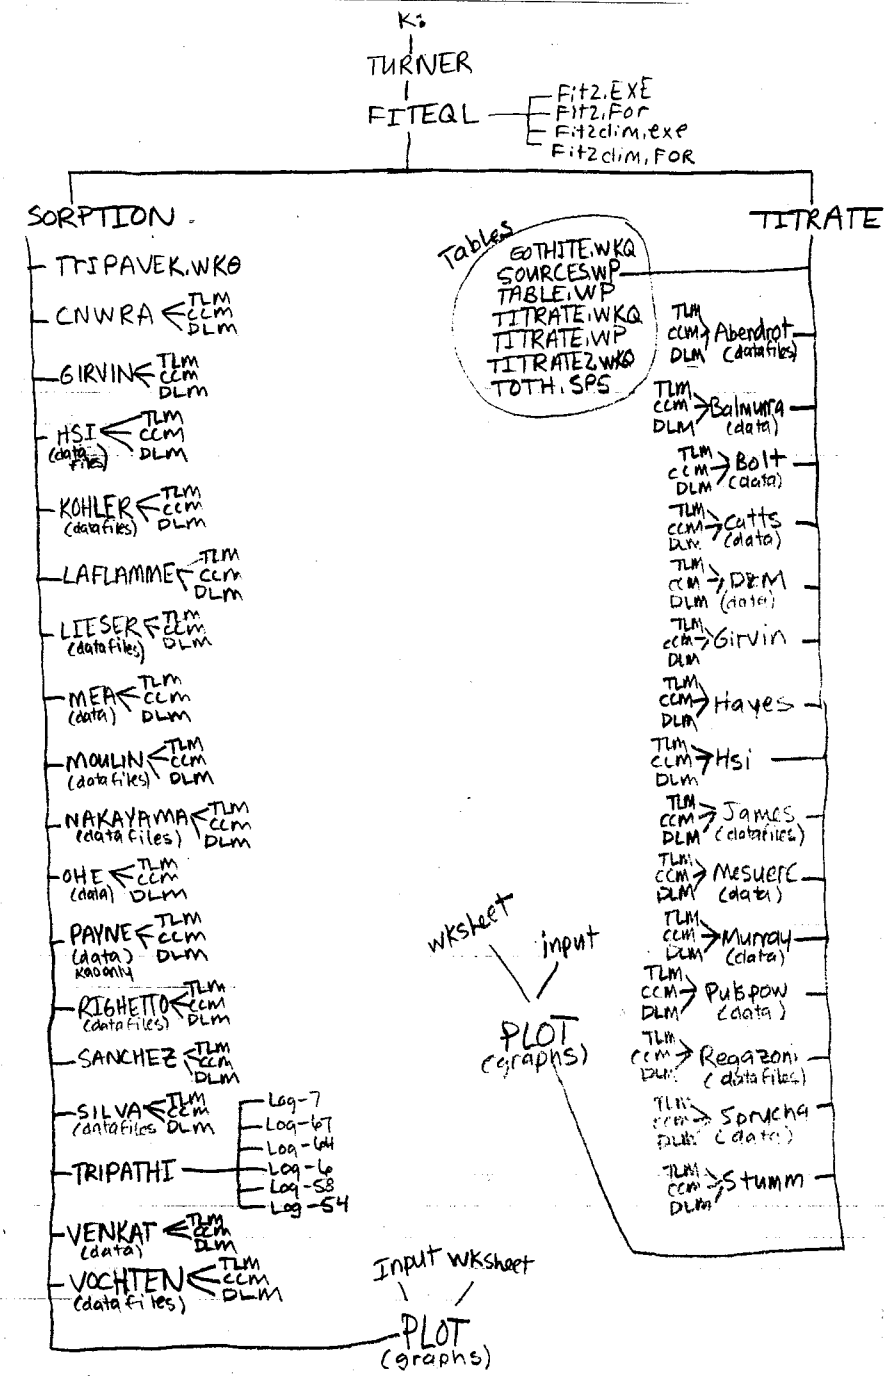 K:
TURNER
FITEQL
Fit2.EXE
Fit2.For
Fit2dlm.exe
Fit2dlm.FOR
SORPTION
TRIPAVEK.WKQ
CNWRA
TLM
CCM
DLM
GIRVIN
TLM
CCM
DLM
HSI
(data files)
TLM
CCM
DLM
KOHLER
(datafiles)
TLM
CCM
DLM
LAFLAMME
TLM
CCM
DLM
LIESER
(datafiles)
TLM
CCM
DLM
MEA
(data)
TLM
CCM
DLM
MOULIN
(datafiles)
TLM
CCM
DLM
NAKAYAMA
(datafiles)
TLM
CCM
DLM
OHE
(data)
TLM
CCM
DLM
PAYNE
(data)
Kao only
TLM
CCM
DLM
RIGHETTO
(datafiles)
TLM
CCM
DLM
SANCHEZ
TLM
CCM
DLM
SILVA
(datafiles
TLM
CCM
DLM
TRIPATHI
Log-7
Log-67
Log-64
Log-6
Log-58
Log-54
VENKAT
(data)
TLM
CCM
DLM
VOCHTEN
(datafiles)
TLM
CCM
DLM
Input wksheet
PLOT
(graphs)
Tables
GOTHITE.WKQ
SOURCES.WP
TABLE.WP
TITRATE.WKQ
TITRATE.WP
TITRATE2.WKQ
TOTH.SPS
TITRATE
TLM
CCM
DLM
Abendrot
(datafiles)
TLM
CCM
DLM
Balmurra
(data)
TLM
CCM
DLM
Bolt
(data)
TLM
CCM
DLM
Catts
(data)
TLM
CCM
DLM
DZM
(data)
TLM
CCM
DLM
Girvin
TLM
CCM
DLM
Hayes
TLM
CCM
DLM
Hsi
TLM
CCM
DLM
James
(datafiles)
TLM
CCM
DLM
Mesuere
(data)
TLM
CCM
DLM
Murray
(data)
TLM
CCM
DLM
Pubpow
(data)
TLM
CCM
DLM
Regazoni
(datafiles)
TLM
CCM
DLM
Sprycha
(data)
TLM
CCM
DLM
Stumm
wksheet
input
PLOT
(graphs)